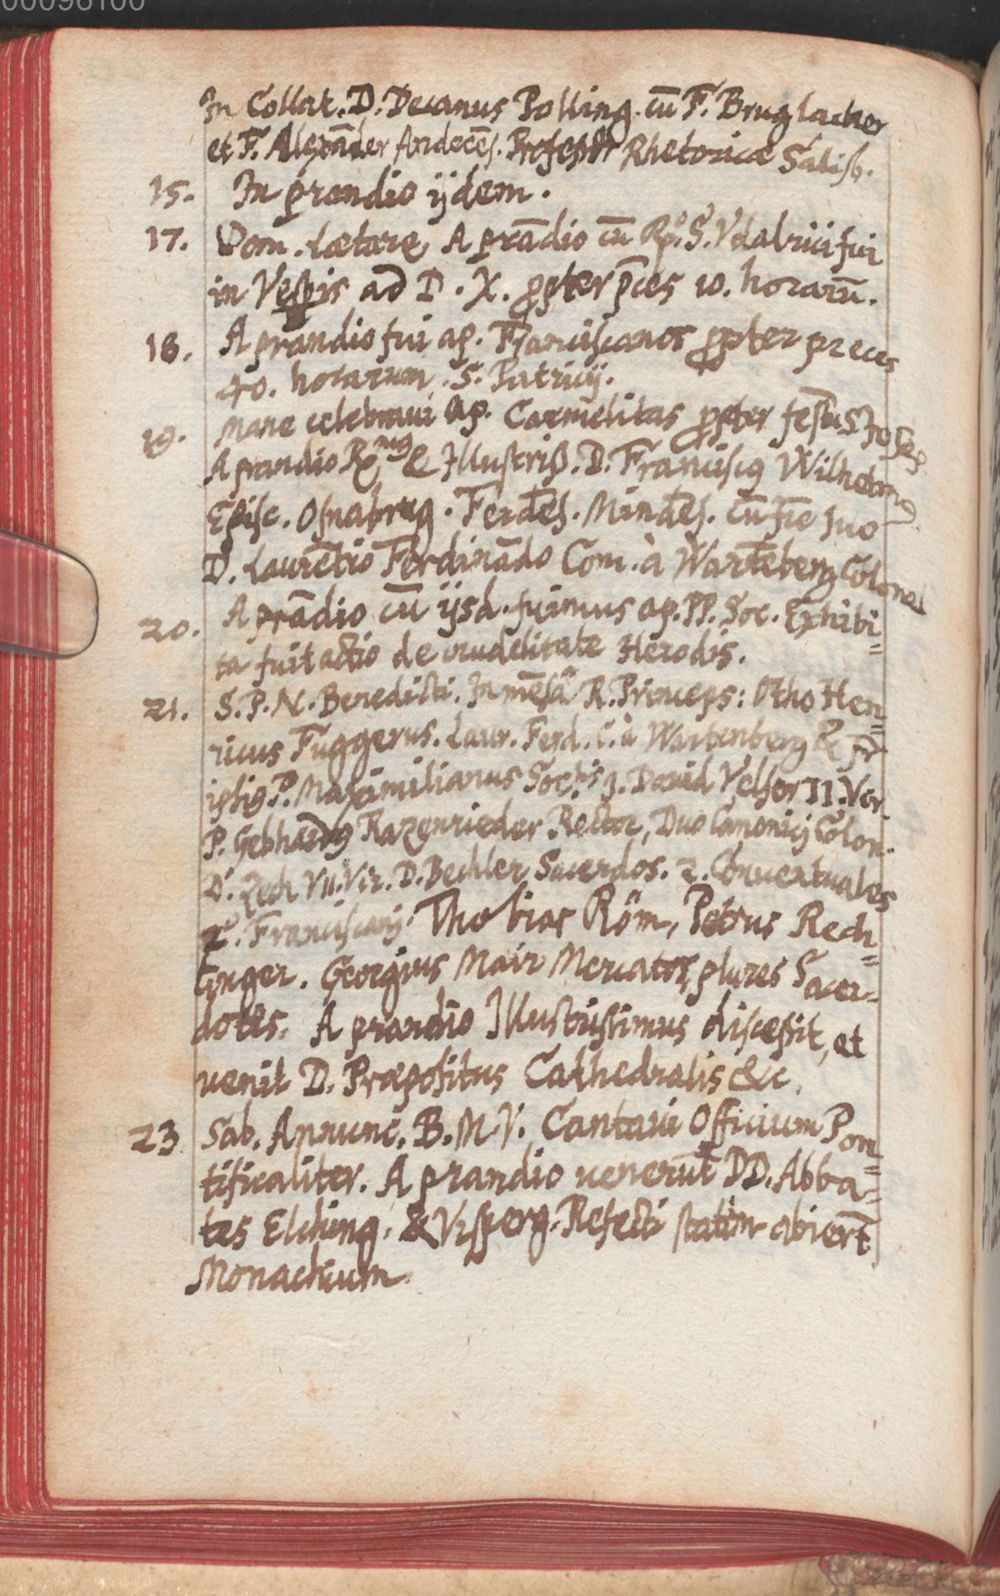 00096100
In Collat. D. Decanus Polling. cū F. Bruglacher
et F. Alexāder Andecēs. Professor Rhetoricæ Salisb.
15. In prandio ijdem.
17. Dom. Lætare, A prādio cū Rᵒ. S. Vdalrici fui
in Vespis ad D. X. ppter pces 10. horarū.
18. A prandio fui ap. Franciscanos ppter preces
40. horarum. S. Patricij.
19. Mane celebraui ap. Carmelitas ppter festū S. Joseph
A prandio Rᵐᵘˢ & Illustriss. D. Franciscq Wilhelmq
Episc. Osnabrug. Ferdēs. Mindēs. cū fre suo
D. Laurētio Ferdinādo Com. à Wartēberg Colonel
20. A prādio cū ijsd. fuimus ap. PP. Soc. Exhibi=
ta fuit actio de crudelitate Herodis.
21. S. P. N. Benedicti. In mēsa R. Princeps: Otho Hen=
ricus Fuggerus. Laur. Ferd. C. à Wartenberg & fr
ipsiq P. Maximilianus Soc. David Velser II. Vir.
P. Gebhardq Razenrieder Rector, Duo Canonicij Colon.
D. Zech VII. Vir. D. Bechler Sacerdos. 2. Conuentuales
2. Franciscanj. Thobias Röm, Petrus Rech=
linger. Georgius Mair Mercator, plures Sacer=
dotes. A prandio Illustrissimus discessit, et
uenit D. Præpositus Cathedralis &c.
23 Sab. Annunc. B. M. V. Cantaui Officium Pon=
tificaliter. A prandio uenerūt DD. Abba=
tes Elching. & Vrsperg. Refecti statim abierūt
Monachium.